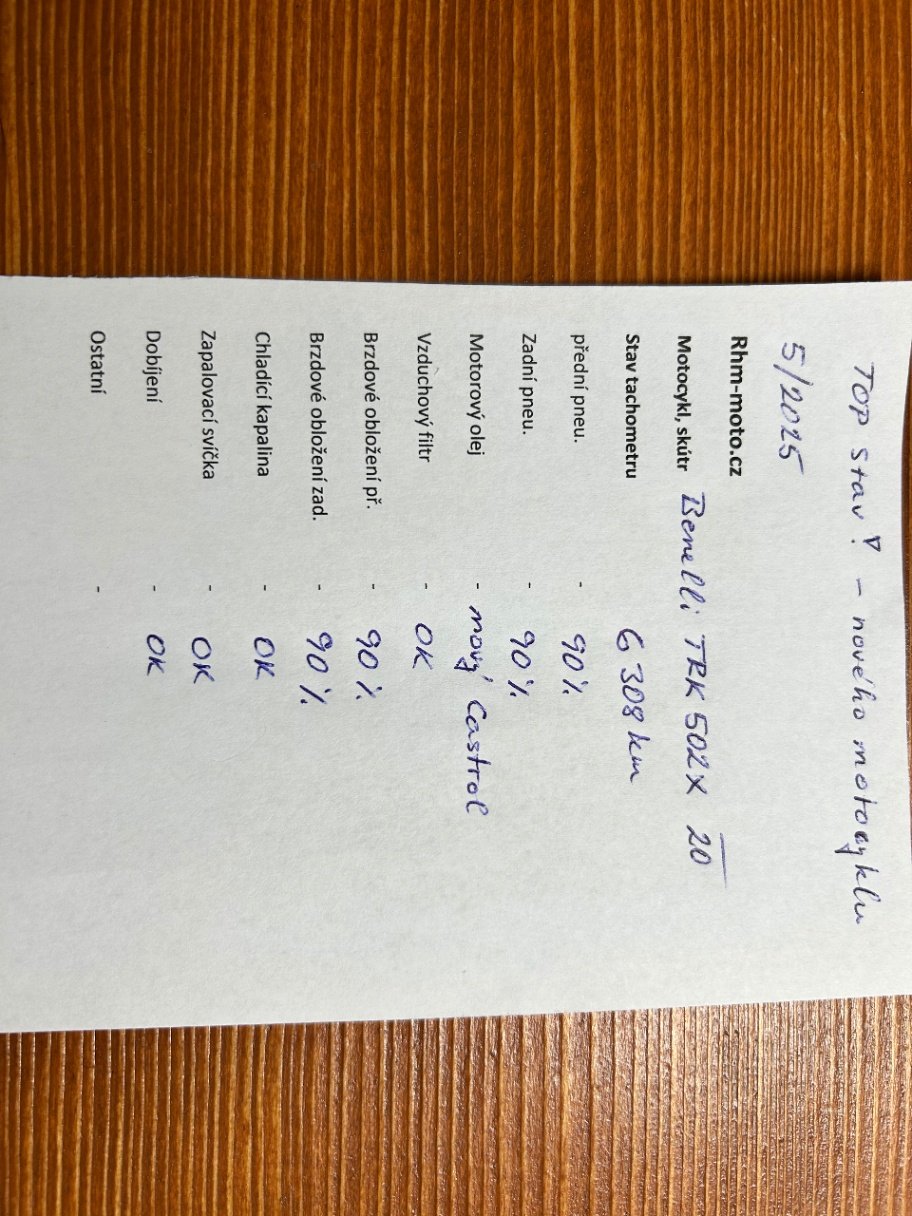 TOP stav! - nového motocyklu
5/2025
Rhm-moto.cz
Motocykl, skútr Benelli TRK 502X 20
Stav tachometru 6 308 km
přední pneu. - 90%
Zadní pneu. - 90%
Motorový olej - nový Castrol
Vzduchový filtr - OK
Brzdové obložení př. - 90%
Brzdové obložení zad. - 90%
Chladící kapalina - OK
Zapalovací svíčka - OK
Dobíjení - OK
Ostatní -